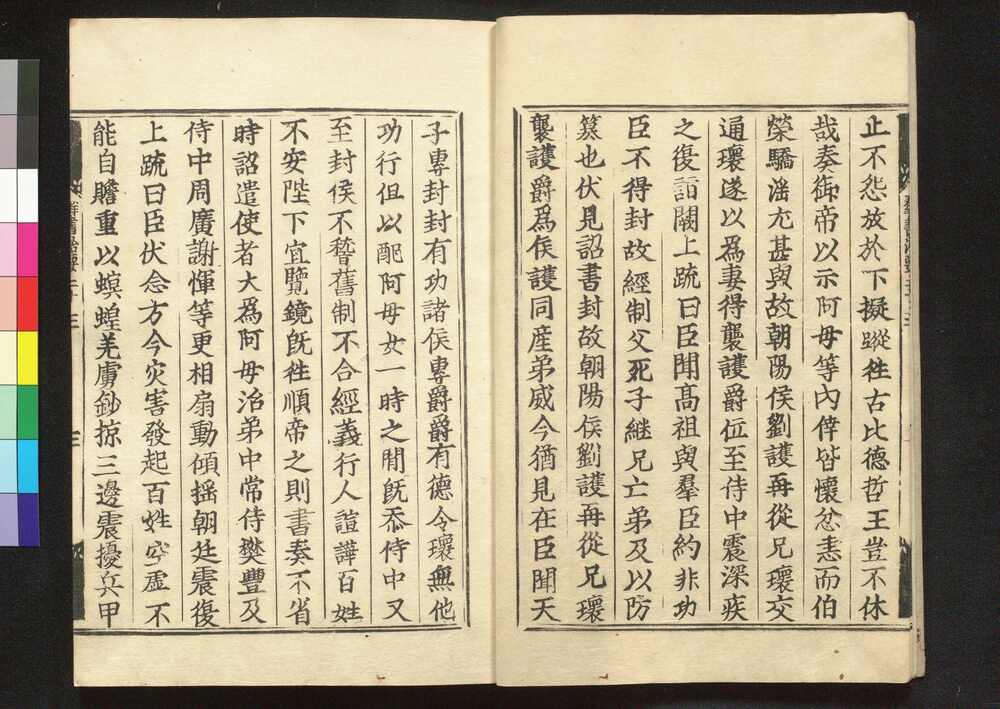 止不怨放於下擬蹤徃古比德哲王豈不休
哉奏御帝以示阿母等內倖皆懷忿恚而伯
榮驕淫尤甚與故朝陽侯劉護再從兄瓌交
通瓌遂以爲妻得襲護爵位至侍中震深疾
之復詣闕上疏曰臣聞髙祖與羣臣約非功
臣不得封故經制父死子継兄亡弟及以防
篡也伏見詔書封故朝陽侯劉護再從兄瓌
襲護爵爲侯護同産弟威今猶見在臣聞天
子專封封有功諸侯專爵爵有德令瓌無他
功行但以配阿母女一時之閒旣忝侍中又
至封侯不稽舊制不合經義行人諠譁百姓
不安陛下宜覽鏡旣徃順帝之則書奏不省
時詔遣使者大爲阿母治弟中常侍樊豐及
侍中周廣謝惲等更相扇動傾揺朝廷震復
上疏曰臣伏念方今灾害發起百姓空虛不
能自贍重以螟蝗羌虜鈔掠三邊震擾兵甲
群書治要二十 三